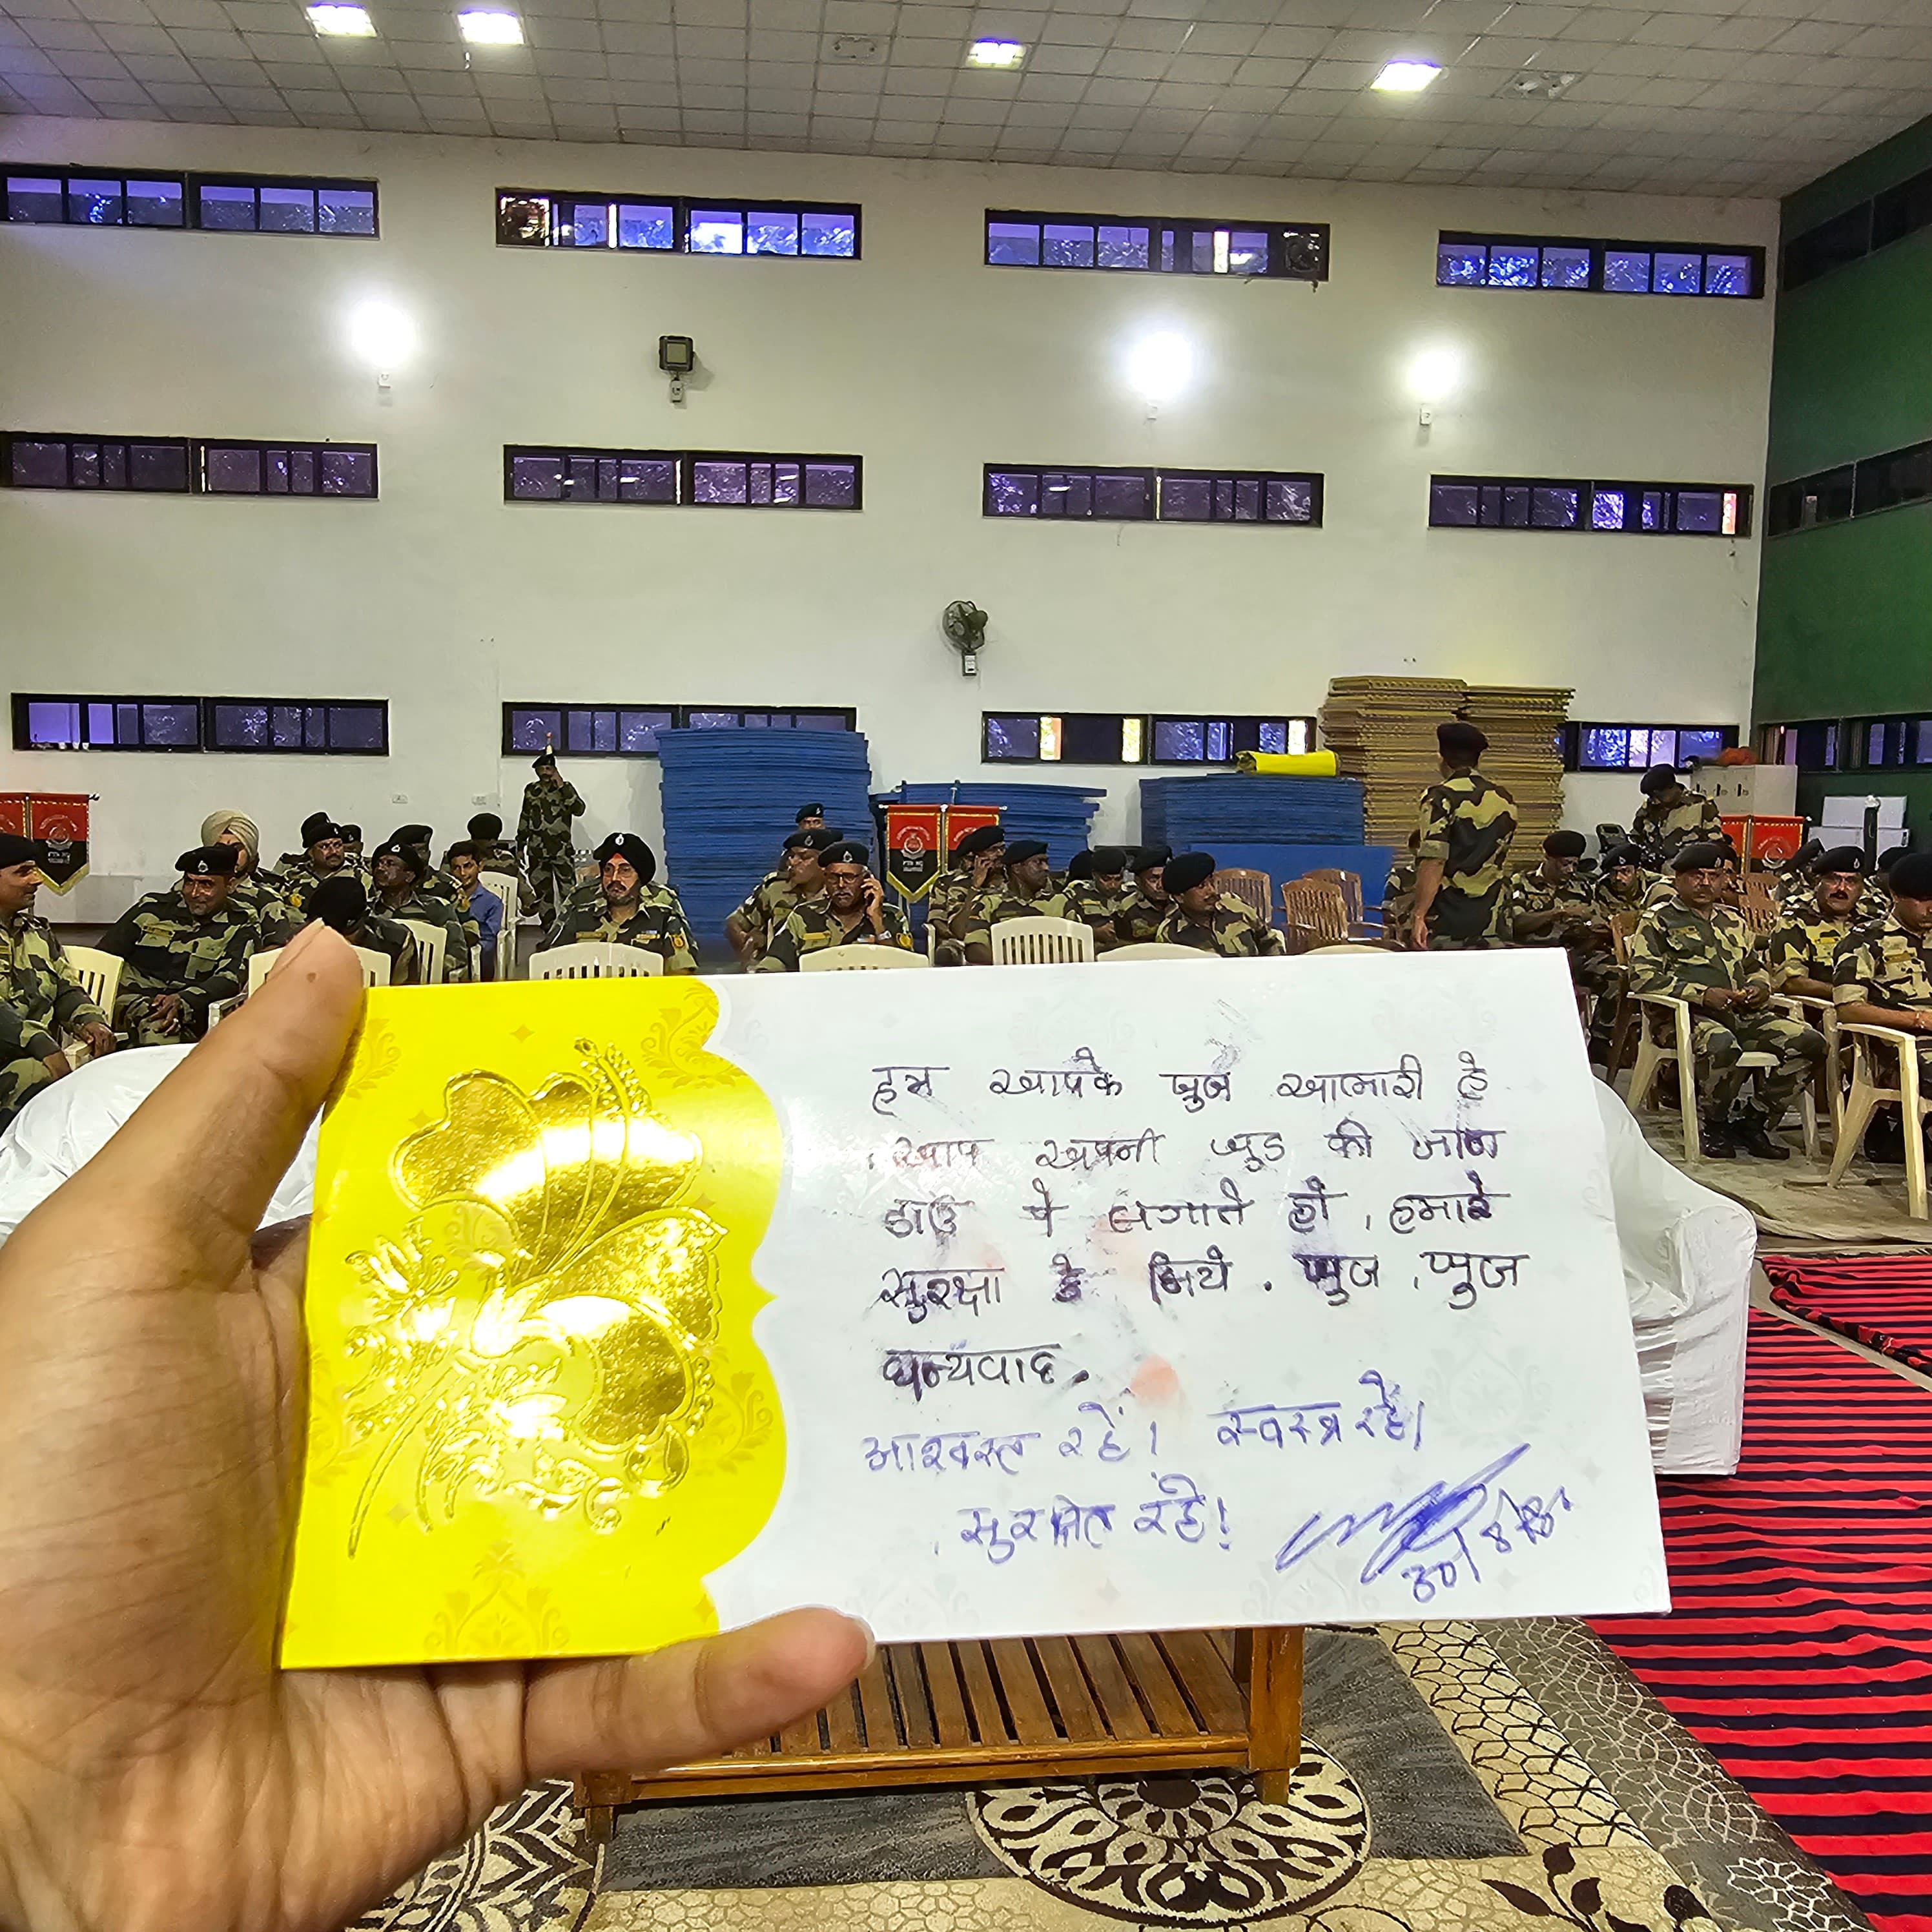 हम आपके खुब आभारी है
आप अपनी खुद की जान
दाव पे लगाते हो, हमारे
सुरक्षा के लिये. खुब, खुब
धन्यवाद.
आश्वस्त रहें। स्वस्थ रहें।
सुरक्षित रहें!
30/8/